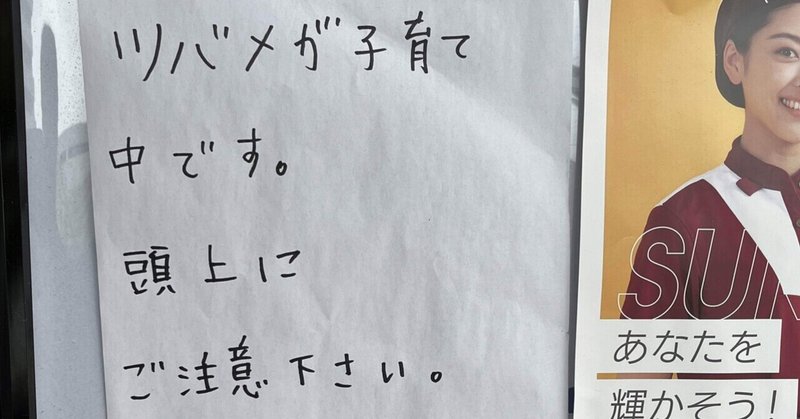 ツバメが子育て
中です。
頭上に
ご注意下さい。
SUN
あなたを
輝かそう!